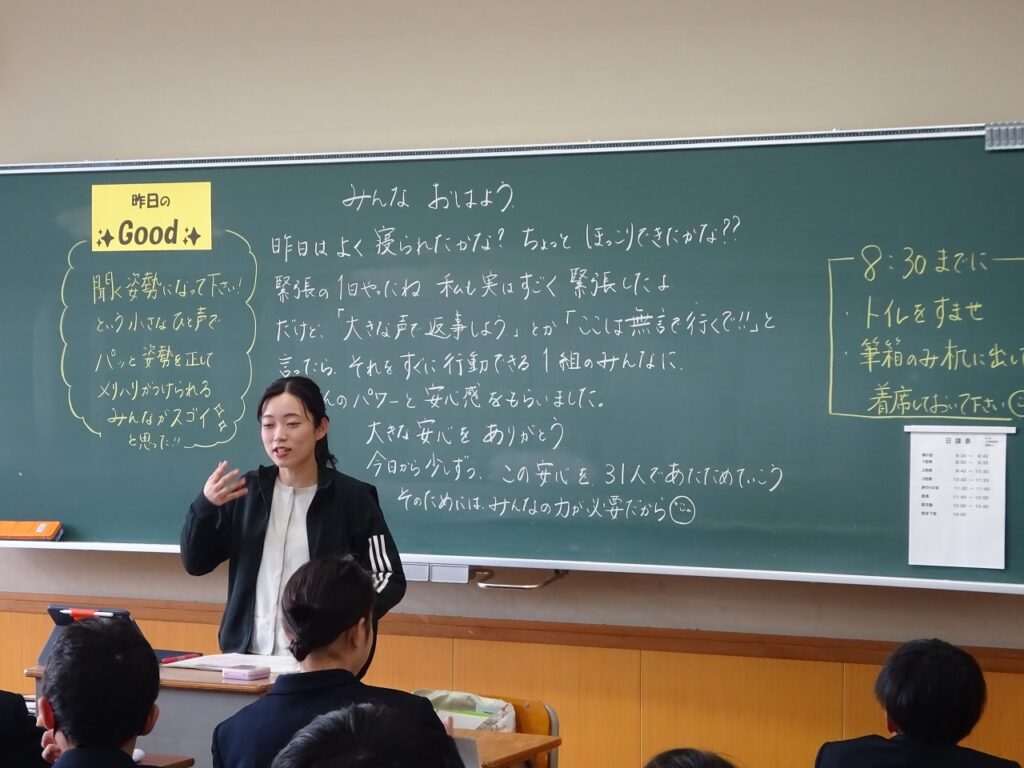 昨日の
Good
聞く姿勢になって下さい!
という小さなひと声で
パッと姿勢を正して
メリハリがつけられる
みんながスゴイ
と思った!!
みんな おはよう
昨日はよく寝られたかな? ちょっと ほっこりできたかな??
緊張の1日やったね 私も実はすごく緊張したよ
だけど、「大きな声で返事しよう」とか「ここは無言で行くで!!」と
言ったら、それをすぐに行動できる1組のみんなに、
んのパワーと安心感をもらいました。
大きな安心を ありがとう
今日から少しずつ、この安心を、31人であたためていこう
そのためには、みんなの力が必要だから
8:30までに
・トイレをすませ
・筆箱のみ机に出し
着席しておいて下さい
日課表
8:30 ~ 8:40